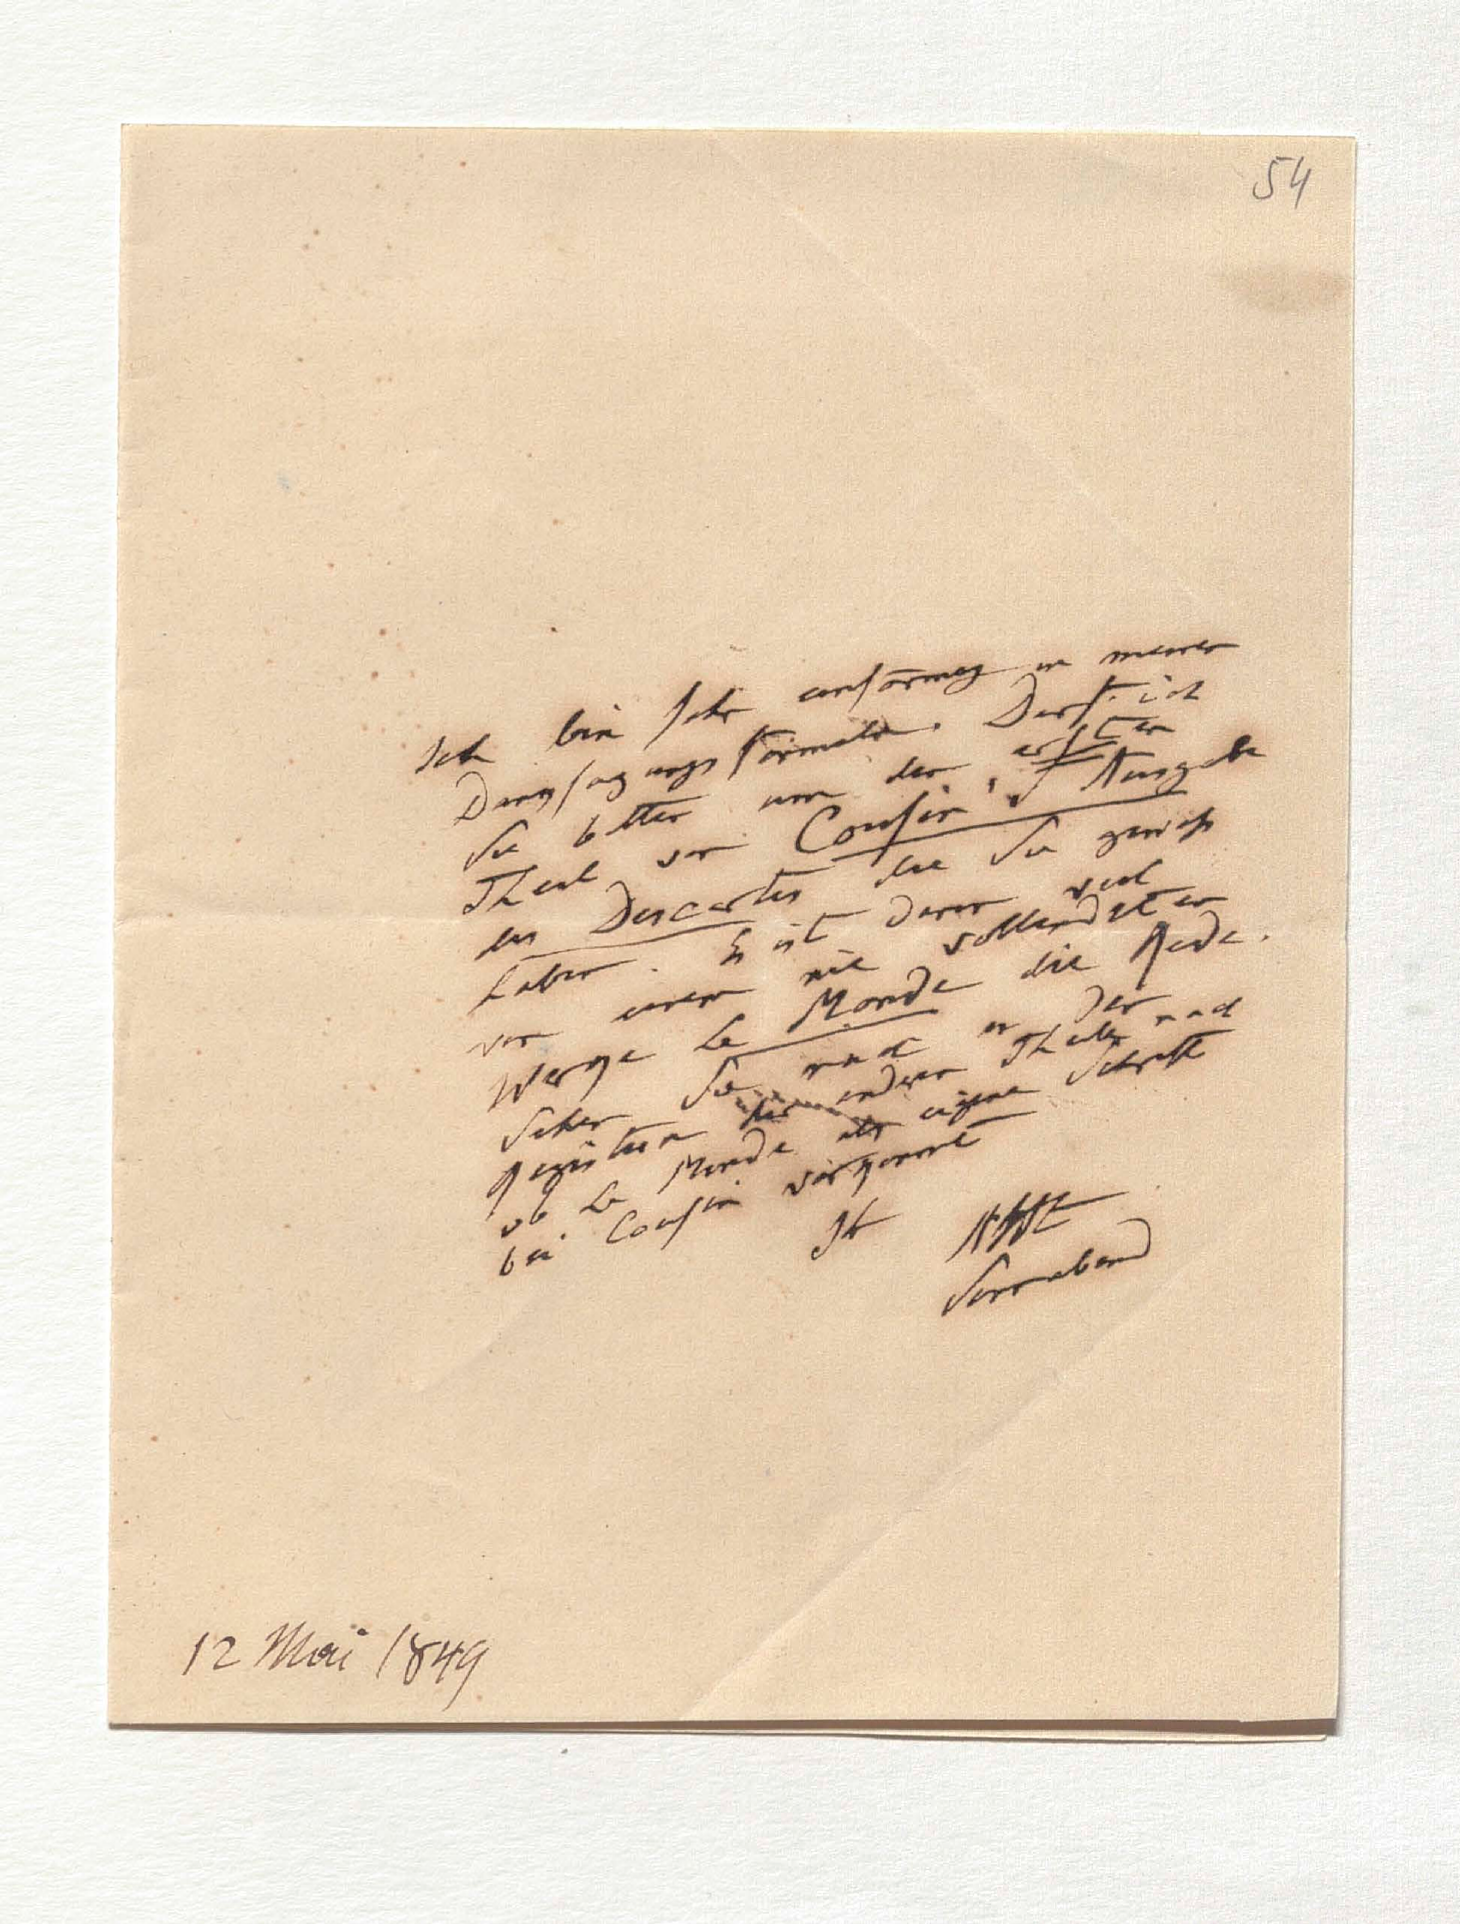 54
Ich bin sehr einförmig in meinen
Danksagungsformeln. Darf ich
Sie bitten um den ersten
Theil von Cousin's Ausgabe
des Descartes die Sie gewiß
haben. Es ist darin viel
von einem nie vollendeten
Werke Le Monde die Rede.
Sehen Sie nach in den
Registern der anderen Theile nach
ob Le Monde als eigene Schrift
bei Cousin vorkommt
Ihr AHt
Sonnabend
12 Mai 1849